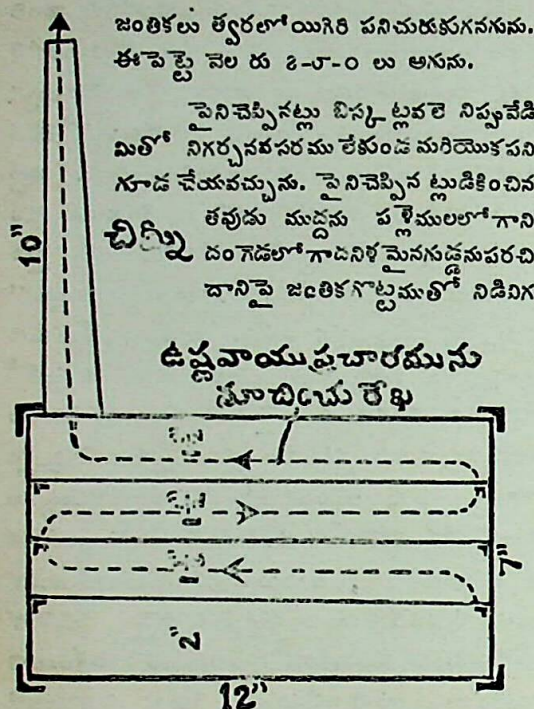 జంతికలు త్వరలో యిగిరి పనిచురుకుగనగును.
ఈ పెట్టె వెల రు ౨-౮-౦ లు అగును.
పైనిచెప్పినట్లు బిస్కట్లవలె నిప్పువేడి
మితో నిగర్చనవసరము లేకుండ మరియొకపని
గూడ చేయవచ్చును. పైనిచెప్పిన ట్లుడికించిన
తవుడు ముద్దను పళ్లెములలో గాని
దంగెడలో గాదనిళ మైనగుడ్డనుపరచి
దానిపై జంతికగొట్టముతో నిడివిగ
చిమ్నీ
10"
ఉష్ణవాయుప్రచారమును
సూచించు రేఖ
2"
7"
12"